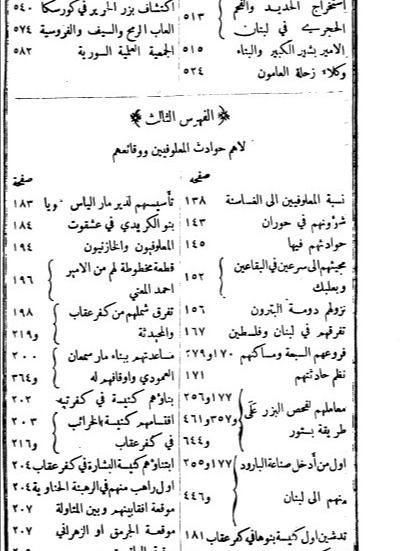 استخراج الحديد والفحم
الحجريين في لبنان } ٥١٣
الامير بشير الكبير والبناء ٥١٥
وكلاء زحلة العامون ٥٢٤
اكتشاف بزر الحرير في كورسكا ٥٤٠
العاب الرمح والسيف والفروسية ٥٧٤
الجمعية العلمية السورية ٥٨٢
﴿ الفهرس الثالث ﴾
لاهم حوادث المعلوفيين ووقائعهم
صفحة
نسبة المعلوفيين الى الغساسنة ١٣٨
شؤونهم في حوران ١٤٣
حوادثهم فيها ١٤٥
مجيئهم الى سرعين في البقاعين
وبعلبك } ١٥٢
نزولهم دومة البترون ١٥٦
تفرقهم في لبنان وفلسطين ١٦٧
فروعهم السبعة ومساكنهم ١٧٠ و٢٧٩
نظم حادثتهم ١٧١
معاملهم لفحص البزر على
طريقة بستور } ١٧٧ و٢٥٦ و٣٥٧ و٤٦١ و٦٤٤
اول من أدخل صناعة البارود
منهم الى لبنان } ١٧٧ و٢٥٥ و٤٤٦
تدشين اول كنيسة بنوها في كفرعقاب ١٨١
صفحة
تأسيسهم لدير مار الياس ١٨٣
بنو الكريدي في عشقوت ١٨٤
المعلوفيون والخازنيون ١٩٤
قطعة مخطوطة لهم من الامير
احمد المعني } ١٩٦
تفرق شملهم من كفرعقاب
والمحيدثة } ١٩٨ و٢١٩
مساعدتهم ببناء مار سمعان
العمودي واوقافهم له } ٢٠٠ و٣٦٤
بناؤهم كنيسة في كفرتيه ٢٠٢
اقتسامهم كنيسة الخرائب
في كفرعقاب } ٢٠٣ و٢١٦
ابتناؤهم كنيسة البشارة في كفرعقاب ٢٠٤
اول راهب منهم في الرهبنة الحناوية ٢٠٤
موقعة افقا بينهم وبين المتاولة ٢٠٧
موقعة الجرمق او الزهراني ٢٠٧